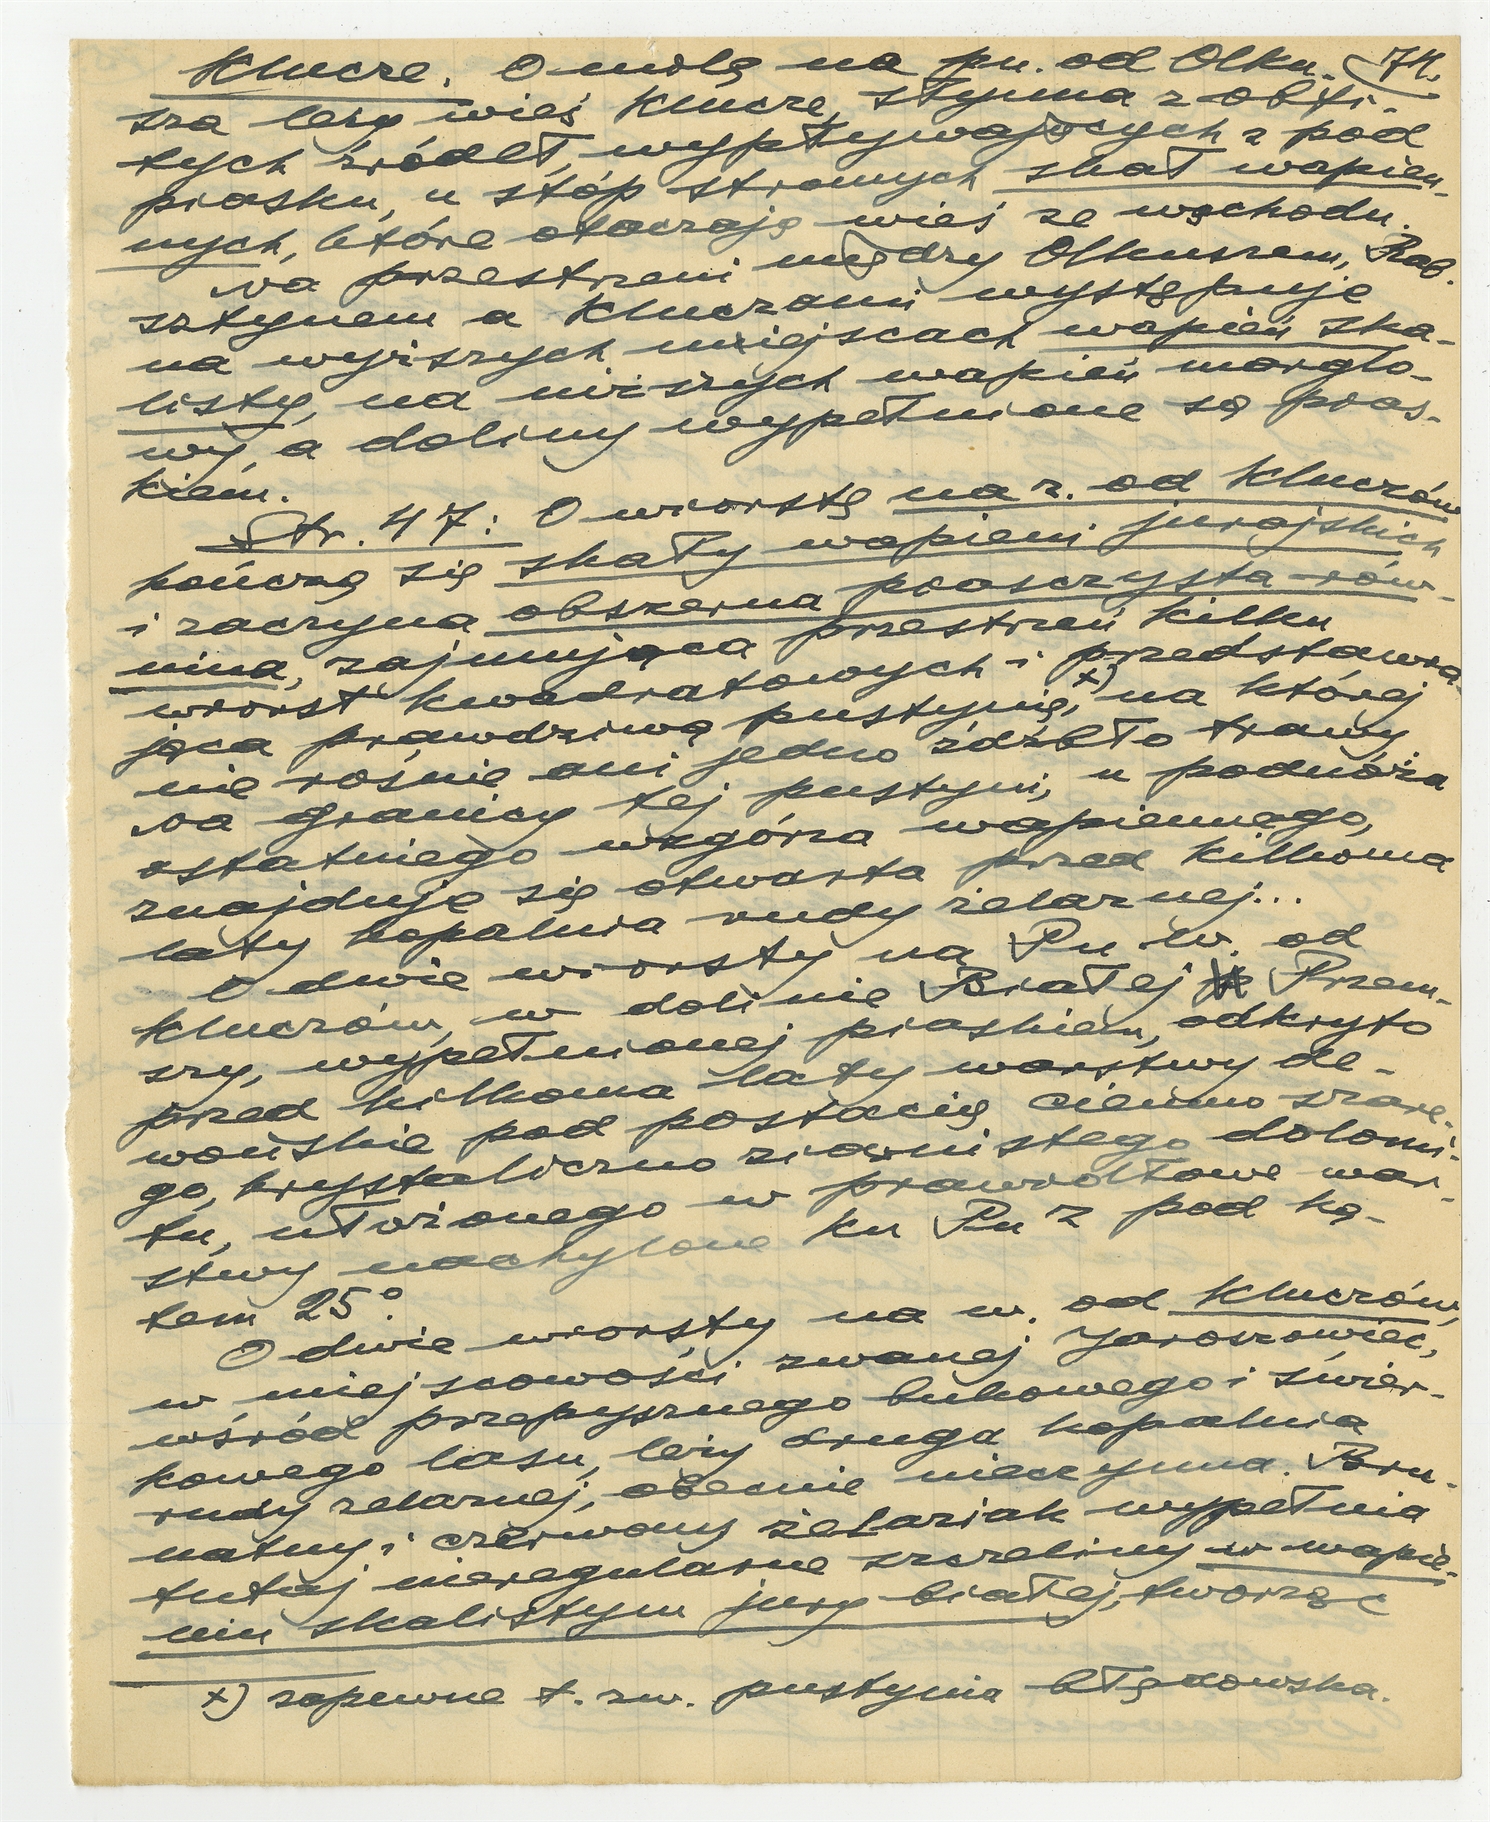 Klucze. O milę na pn. od Olku- 74.
sza leży wieś Klucze, słynna z obfi-
tych źródeł, wypływających z pod
piasku, u stóp stromych skał wapien-
nych, które otaczają wieś ze wschodu.
Na przestrzeni między Olkuszem, Rab-
sztynem a Kluczami występuje
na wyższych miejscach wapień ska-
listy, na niższych wapień marglo-
wy, a doliny wypełnione są pias-
kiem.
Str. 47: O wiorstę na z. od Kluczów
kończą się skały wapieni jurajskich
i zaczyna obszerna piaszczysta rów-
nina, zajmująca przestrzeń kilku
wiorst kwadratowych i przedstawia-
jąca prawdziwą pustynię, x) na której
nie rośnie ani jedno źdźbło trawy.
Na granicy tej pustyni, u podnóża
ostatniego wzgórza wapiennego,
znajduje się otwarta przed kilkoma
laty kopalnia rudy żelaznej...
O dwie wiorsty na Pn. W. od
Kluczów, w dolinie Białej Przem-
szy, wypełnionej piaskiem, odkryto
przed kilkoma laty warstwy de-
wońskie pod postacią ciemno szare-
go, krystaliczno ziarnistego dolomi-
tu, ułożonego w prawidłowe war-
stwy nachylone ku Pn Z pod ką-
tem 25°.
O dwie wiorsty na w. od Kluczów,
w miejscowości zwanej Jaroszowiec,
wśród przepysznego bukowego i świer-
kowego lasu, leży druga kopalnia
rudy żelaznej, obecnie nieczynna. Bru-
natny i czerwony żelaziak wypełnia
tutaj nieregularne szczeliny w wapie-
niu skalistym jury białej, tworząc
x) zapewne t. zw. pustynia błędowska.